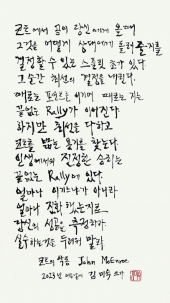 코트에서 공이 당신에게 올 때
그것을 어떻게 상대에게 돌려줄지를
결정할 수 있는 스윙할 뿐이 있다
그 순간 최선의 결정을 내린다.
때로는 포인트를 이기며 때로는 지는
끝없는 Rally가 이어진다
하지만 최선을 다하고
코트를 밟는 용기를 찾는다.
인생에서의 진정한 승리는
끝없는 Rally에 있다.
얼마나 이기느냐가 아니라
얼마나 진화했는지로
당신의 성공을 측정하라
실수하는 것을 두려워 말라
코트의 악동 John McEnroe
2023년 김미숙 쓰다